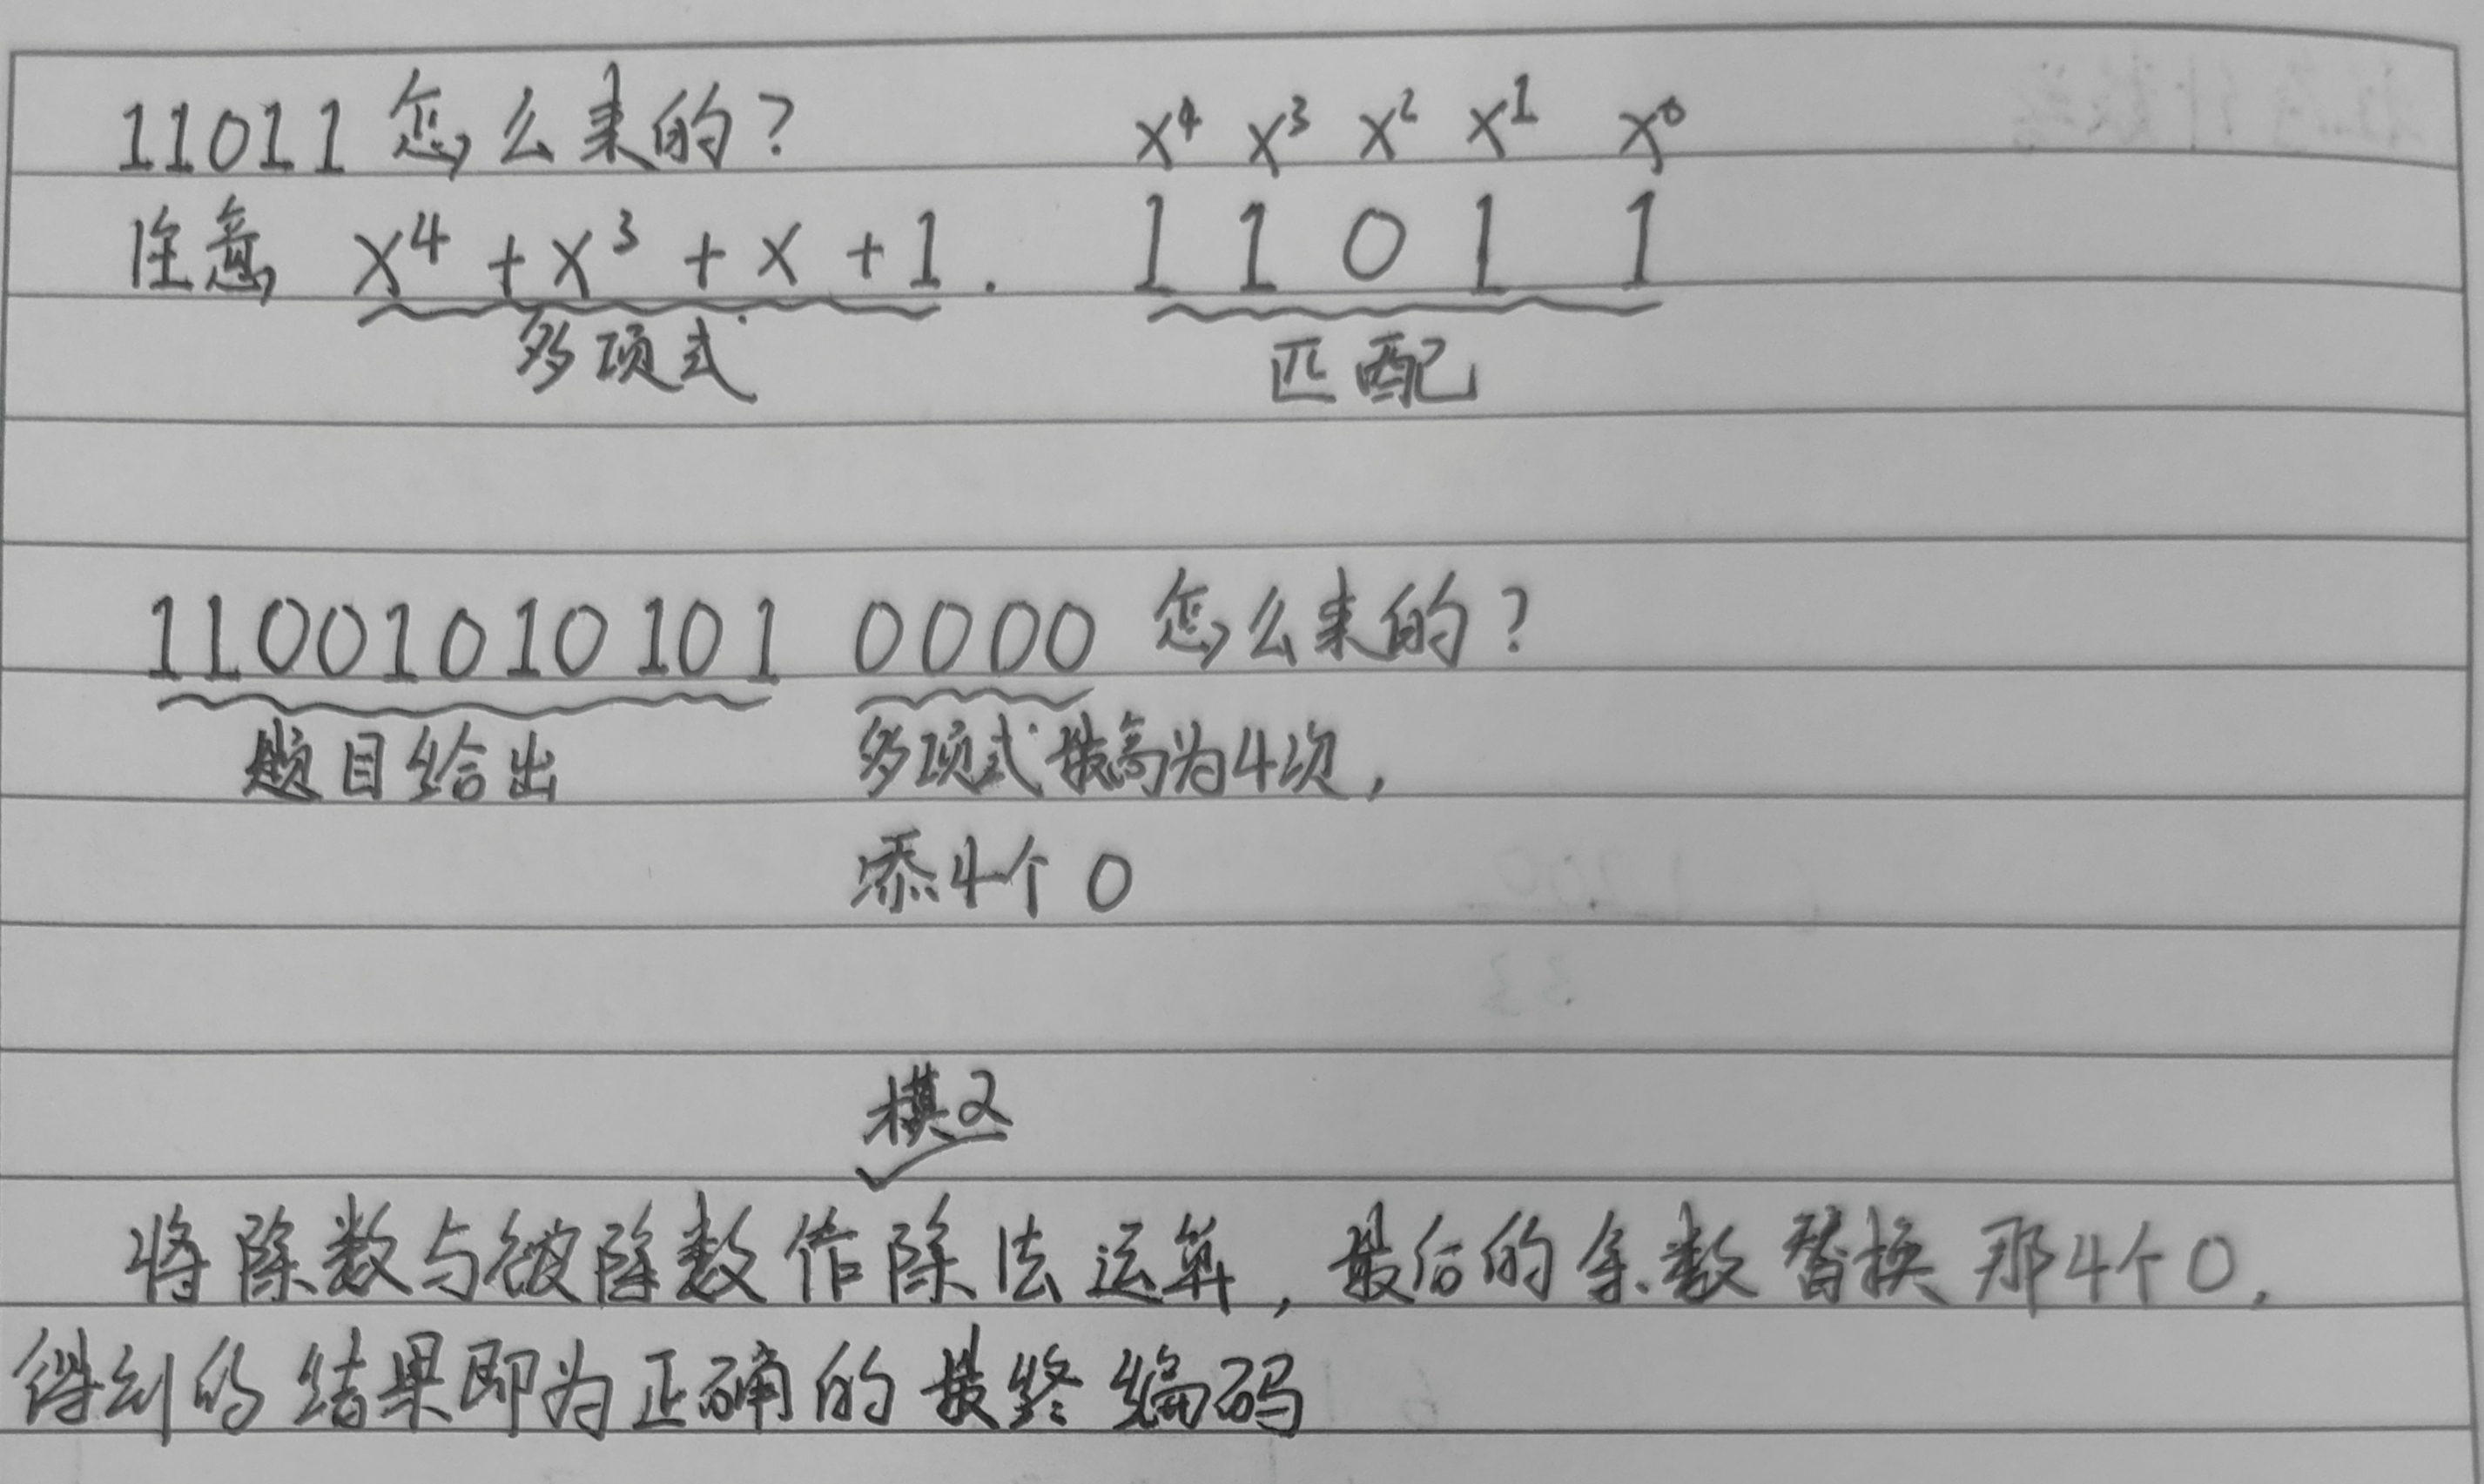 11011怎么来的? x⁴ x³ x² x¹ x⁰
注意 x⁴+x³+x+1. 1 1 0 1 1
多项式 匹配
11001010101 0000 怎么来的?
题目给出 多项式最高为4次,
添4个0
模2
将除数与被除数作除法运算,最后的余数替换那4个0,
得到的结果即为正确的最终编码